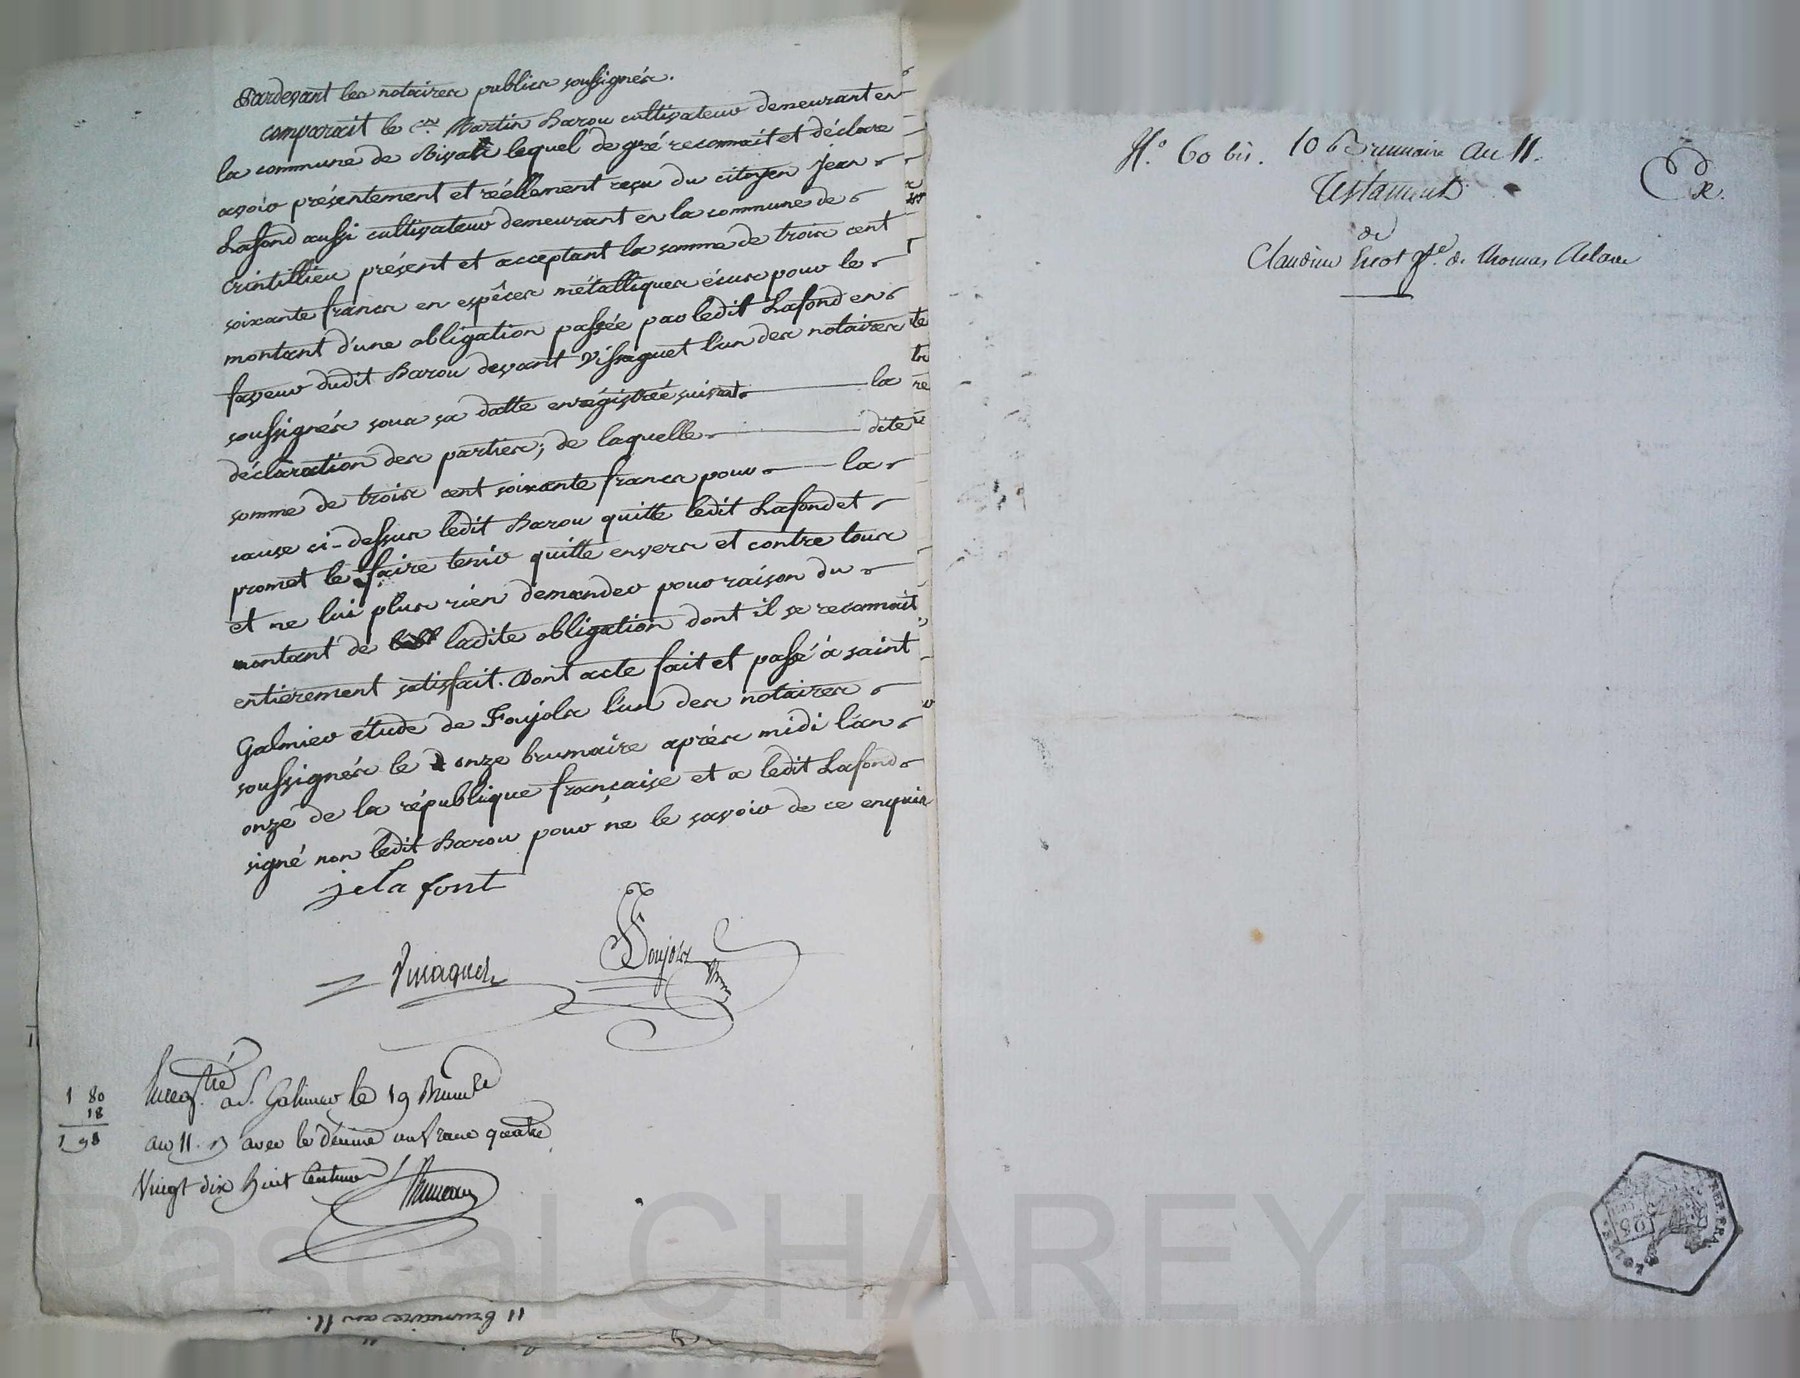 Pardevant les notaires publics soussignés.
comparait le c.en Martin Barou cultivateur demeurant en
la commune de lequel de gré reconnait et déclare
avoir présentement et réellement reçu du citoyen jean
Lafond aussi cultivateur demeurant en la commune de
Crintillieu présent et acceptant la somme de trois cent
soixante francs en espêces métalliques écus pour le
montant d'une obligation passée par ledit Lafond en
faveur dudit Barou devant Vissaguet l'un des notaires
soussignés sous sa datte enrégistrée suivat la
déclaration des parties; de laquelle dite
somme de trois cent soixante francs pour la
cause ci-dessus ledit Barou quitte ledit Lafond et
promet le faire tenir quitte envers et contre tous
et ne lui plus rien demander pour raison du
montant de ladite obligation dont il se reconnait
entiérement satisfait. Dont acte fait et passé à saint
Galmier étude de Foujols l'un des notaires
soussignés le onze brumaire aprés midi l'an
onze de la république française et a ledit Lafond
signé non ledit Barou pour ne le savoir de ce enquis
je la font
Foujols
1 80
18
1 98
Enreg.tré a S. Galmier le 19 Brum.re
an 11. R avec le décime un franc quatre
Vingt dix huit Centimes
11 brumaire an 11.
N.o 60 bis. 10 Brumaire an 11.
Testament
de
Claudine f.e de Thomas
REP. FRA.